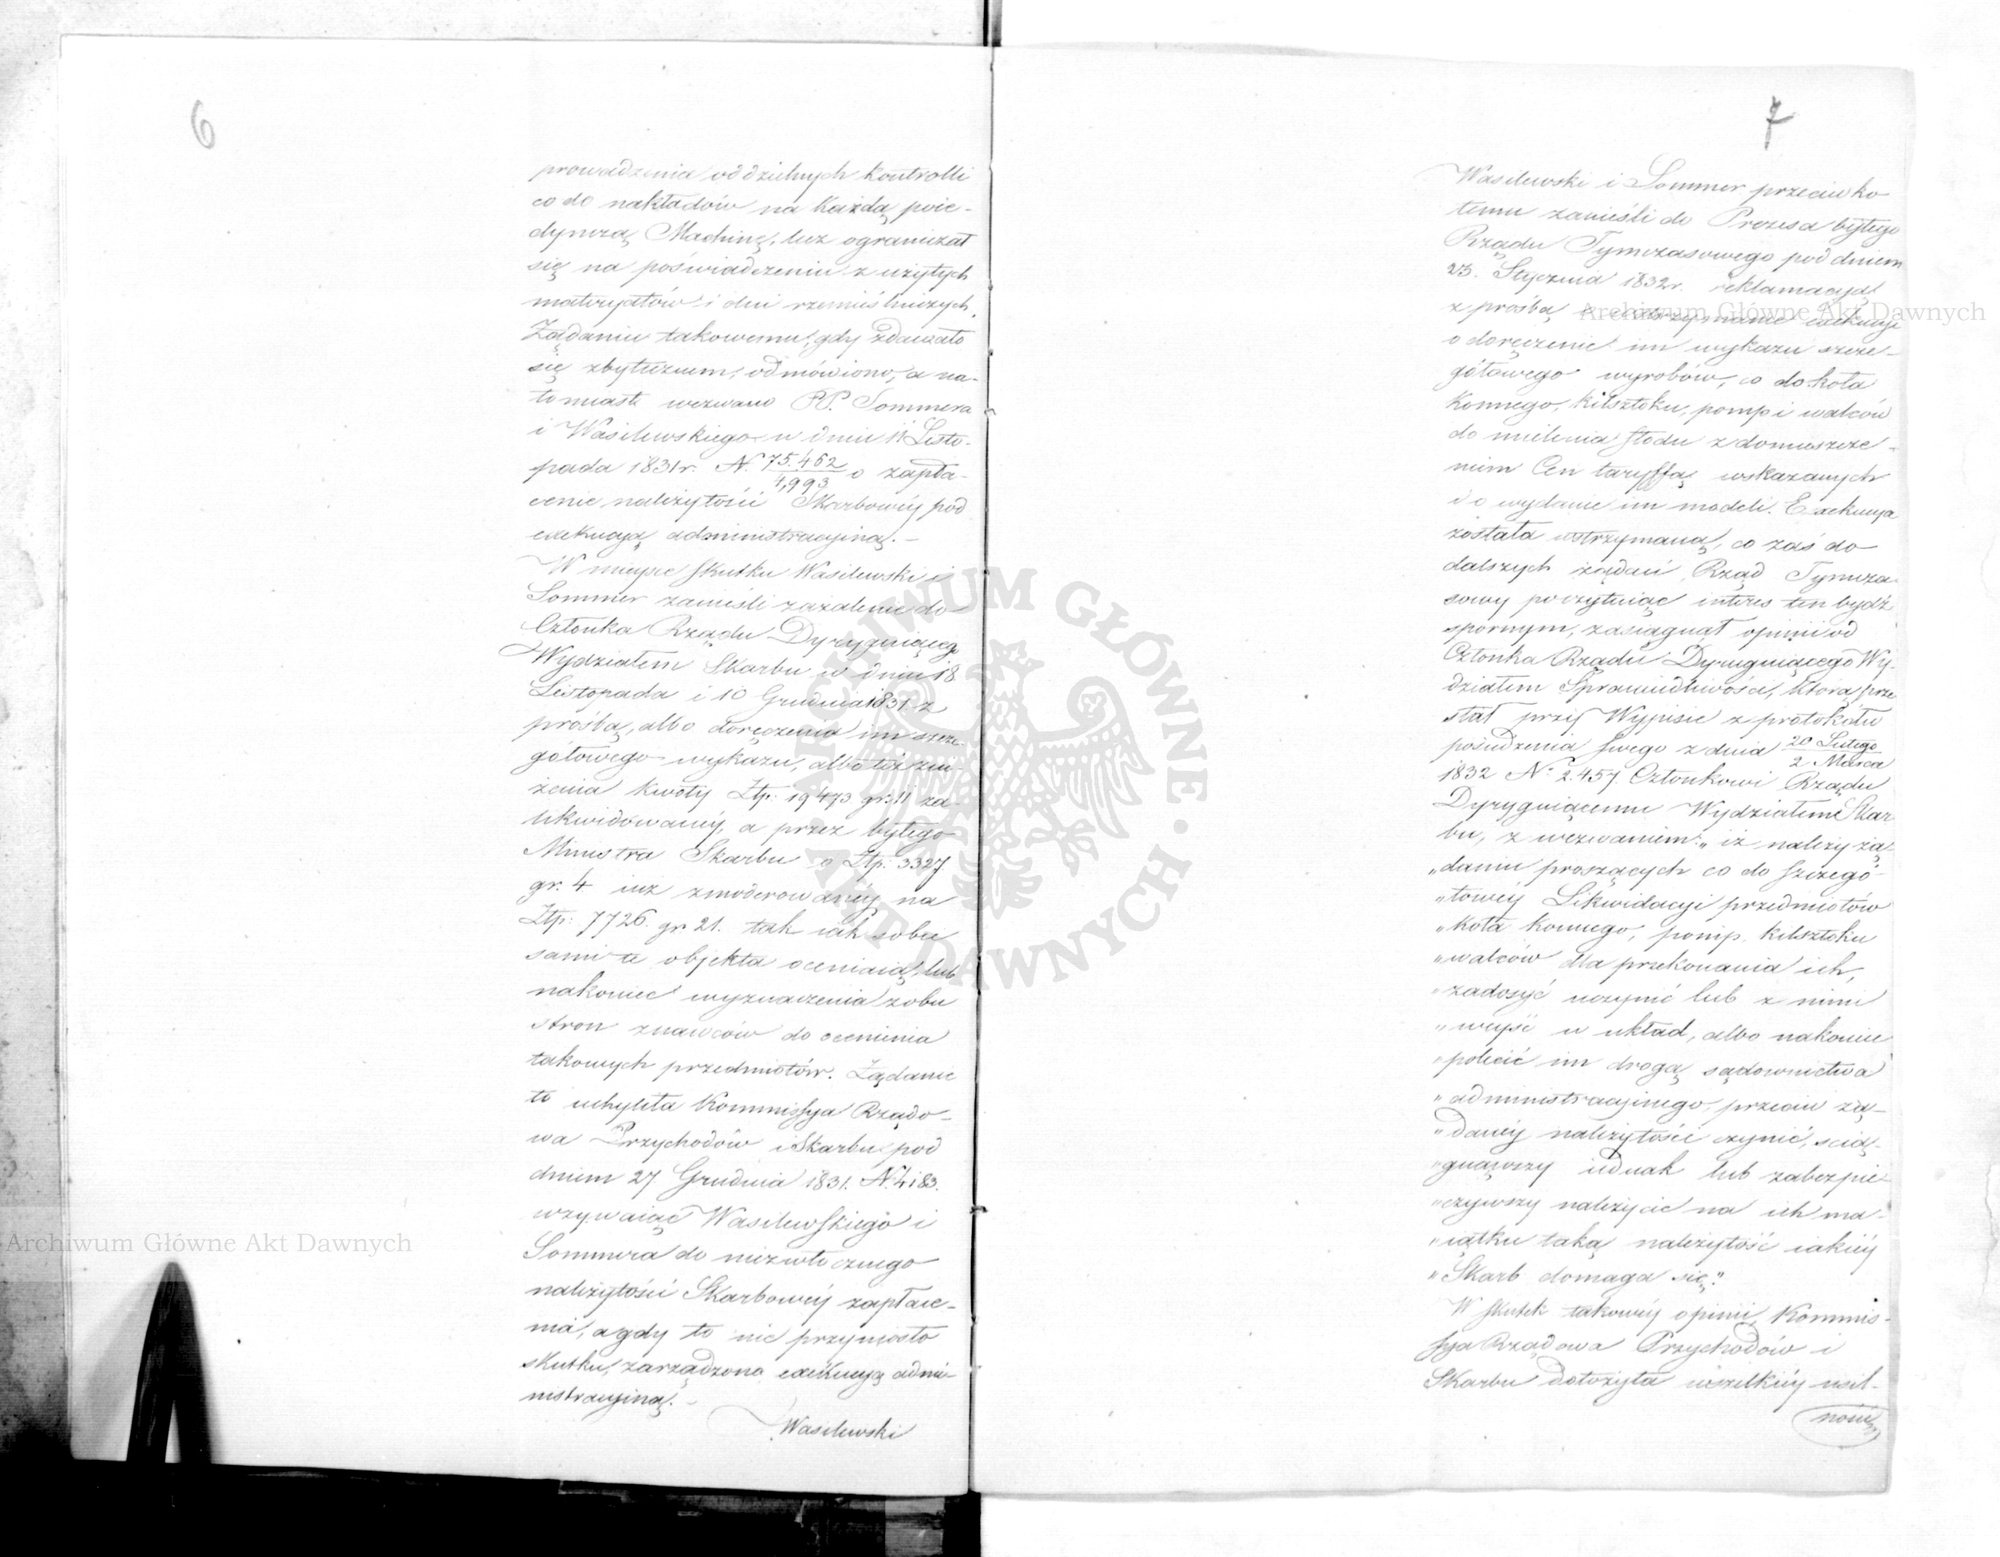 6
prowadzenia oddzielnych kontrolli
co do nakładów na każdą poie-
dynczą Machinę, lecz ograniczał
się na poświadczeniu z użytych
materyałów i dni rzemieślniczych.
Żądaniu takowemu, gdy zdawało
się zbytecznem, odmówiono, a na-
tomiast wezwano PP. Sommera
i Wasilewskiego w dniu 11 Listo-
pada 1831 r. N. 75.462/4,993 o zapła-
cenie należytości Skarbowéy pod
exekucyą administracyiną.-
W mieysce skutku Wasilewski i
Sommer zanieśli zażalenie do
Członka Rządu Dyryguiącego
Wydziałem Skarbu w dniu 18
Listopada i 10 Grudnia 1831 z
prośbą, albo doręczenia im szcze-
gółowego wykazu, albo też zni-
żenia kwoty Złp: 19473 gr: 11 za-
likwidowanéy, a przez byłego
Ministra Skarbu o Złp: 3327
gr. 4 iuż zmoderowanéy na
Złp: 7726. gr 21. tak iak sobie
sami te objekta oceniaią, lub
nakoniec wyznaczenia z obu
stron znawców do ocenienia
takowych przedmiotów. Żądanie
to uchyliła Kommissya Rządo-
wa Przychodów i Skarbu pod
dniem 27 Grudnia 1831. N. 4183.
wzywaiąc Wasilewskiego i
Sommera do niezwłocznego
należytości Skarbowéy zapłace-
nia, a gdy to nie przyniosło
skutku, zarządzono exekucyą admi-
nistracyiną.-
Wasilewski
7
Wasilewski i Sommer przeciwko
temu zanieśli do Prezesa byłego
Rządu Tymczasowego pod dniem
25. Stycznia 1832 r. reklamacyą
z prośbą o wstrzymanie exekucyi
o doręczenie im wykazu szcze-
gółowego wyrobów, co do koła
Konnego, kilsztoku, pomp i walców
do mielenia słodu z domieszcze-
niem Cen taryffą wskazanych
i o wydanie im modeli. Exekucya
została wstrzymaną, co zaś do
dalszych żądań Rząd Tymcza-
sowy poczytuiąc interes ten bydź
spornym, zasiągnął opinii od
Członka Rządu Dyryguiącego Wy-
działem Sprawiedliwości, którą prze-
słał przy Wypisie z protokułu
posiedzenia swego z dnia 20 Lutego/2 Marca
1832 N. 2.457. Członkowi Rządu
Dyryguiącemu Wydziałem Skar-
bu, z wezwaniem: „iż należy żą-
„daniu proszących co do szczegó-
„łowéy Likwidacyi przedmiotów
„koła konnego, pomp, kilsztoku
„walców dla przekonania ich,
„zadosyć uczynić lub z nimi
„weyść w układ, albo nakoniec
„polecić im drogą sądownictwa
„administracyinego, przeciw żą-
„danéy należytości czynić, ścią-
„gnąwszy iednak lub zabezpie-
„czywszy należycie na ich ma-
„iątku taką należytość iakiéy
„Skarb domaga się."
W skutek takowéy opinii, Kommis-
sya Rządowa Przychodów i
Skarbu dołożyła wszelkiéy usil-
ności
Archiwum Główne Akt Dawnych
Archiwum Główne Akt Dawnych
ARCHIWUM GŁÓWNE · AKT DAWNYCH ·